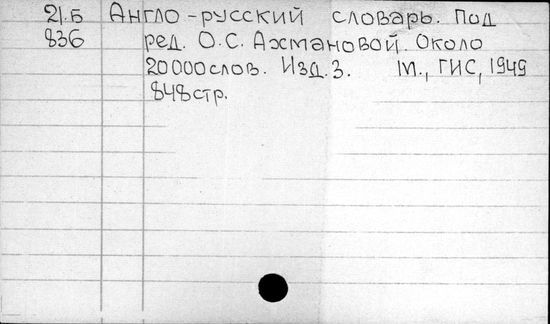 21.Б Англо-русский словарь. Под
836 ред. О.С. Ахмановой. Около
20000 слов. Изд. 3. М., ГИС, 1949
848 стр.